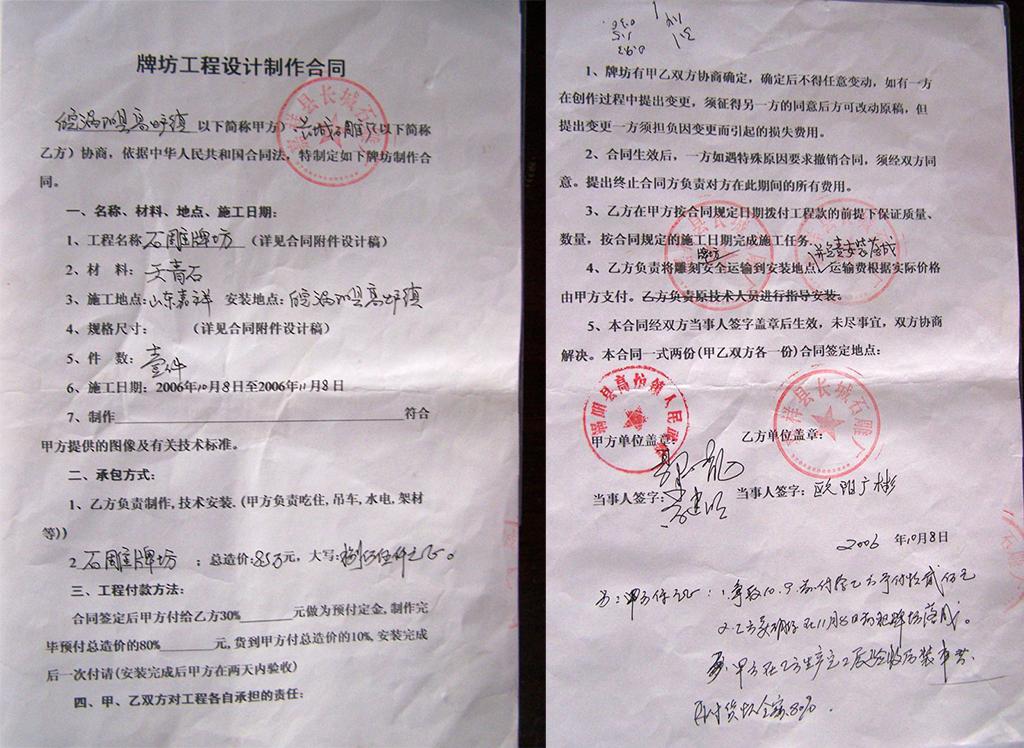 牌坊工程设计制作合同
皖涡阳县高炉镇 以下简称甲方）长城石雕厂（以下简称
乙方）协商，依据中华人民共和国合同法，特制定如下牌坊制作合
同。
一、名称、材料、地点、施工日期：
1、工程名称 石雕牌坊 （详见合同附件设计稿）
2、材 料：天青石
3、施工地点：山东嘉祥 安装地点：皖涡阳县高炉镇
4、规格尺寸： （详见合同附件设计稿）
5、件 数：壹件
6、施工日期：2006年10月8日至2006年11月8日
7、制作 符合
甲方提供的图像及有关技术标准。
二、承包方式：
1、乙方负责制作,技术安装.（甲方负责吃住,吊车,水电,架材
等)）
2 石雕牌坊 ；总造价:8.5万元，大写:捌万伍仟元正。
三、工程付款方法：
合同签定后甲方付给乙方30% 元做为预付定金,制作完
毕预付总造价的80% 元,货到甲方付总造价的10%,安装完成
后一次付请(安装完成后甲方在两天内验收)
四、甲、乙双方对工程各自承担的责任：
1、牌坊有甲乙双方协商确定，确定后不得任意变动，如有一方
在创作过程中提出变更，须征得另一方的同意后方可改动原稿，但
提出变更一方须担负因变更而引起的损失费用。
2、合同生效后，一方如遇特殊原因要求撤销合同，须经双方同
意。提出终止合同方负责对方在此期间的所有费用。
3、乙方在甲方按合同规定日期拨付工程款的前提下保证质量、
数量，按合同规定的施工日期完成施工任务。
牌坊 并负责安装落成
4、乙方负责将雕刻安全运输到安装地点，运输费根据实际价格
由甲方支付。乙方负责原技术人员进行指导安装。
5、本合同经双方当事人签字盖章后生效，未尽事宜，双方协商
解决。本合同一式两份(甲乙双方各一份)合同签定地点：
涡阳县高炉镇人民政府
嘉祥县长城石雕厂
甲方单位盖章： 乙方单位盖章：
当事人签字： 当事人签字：欧阳广彬
2006 年10月8日
2.乙方要确保在11月8日前把牌坊落成。
甲方在乙方生产完工后验收后装车
付货款全额80%.